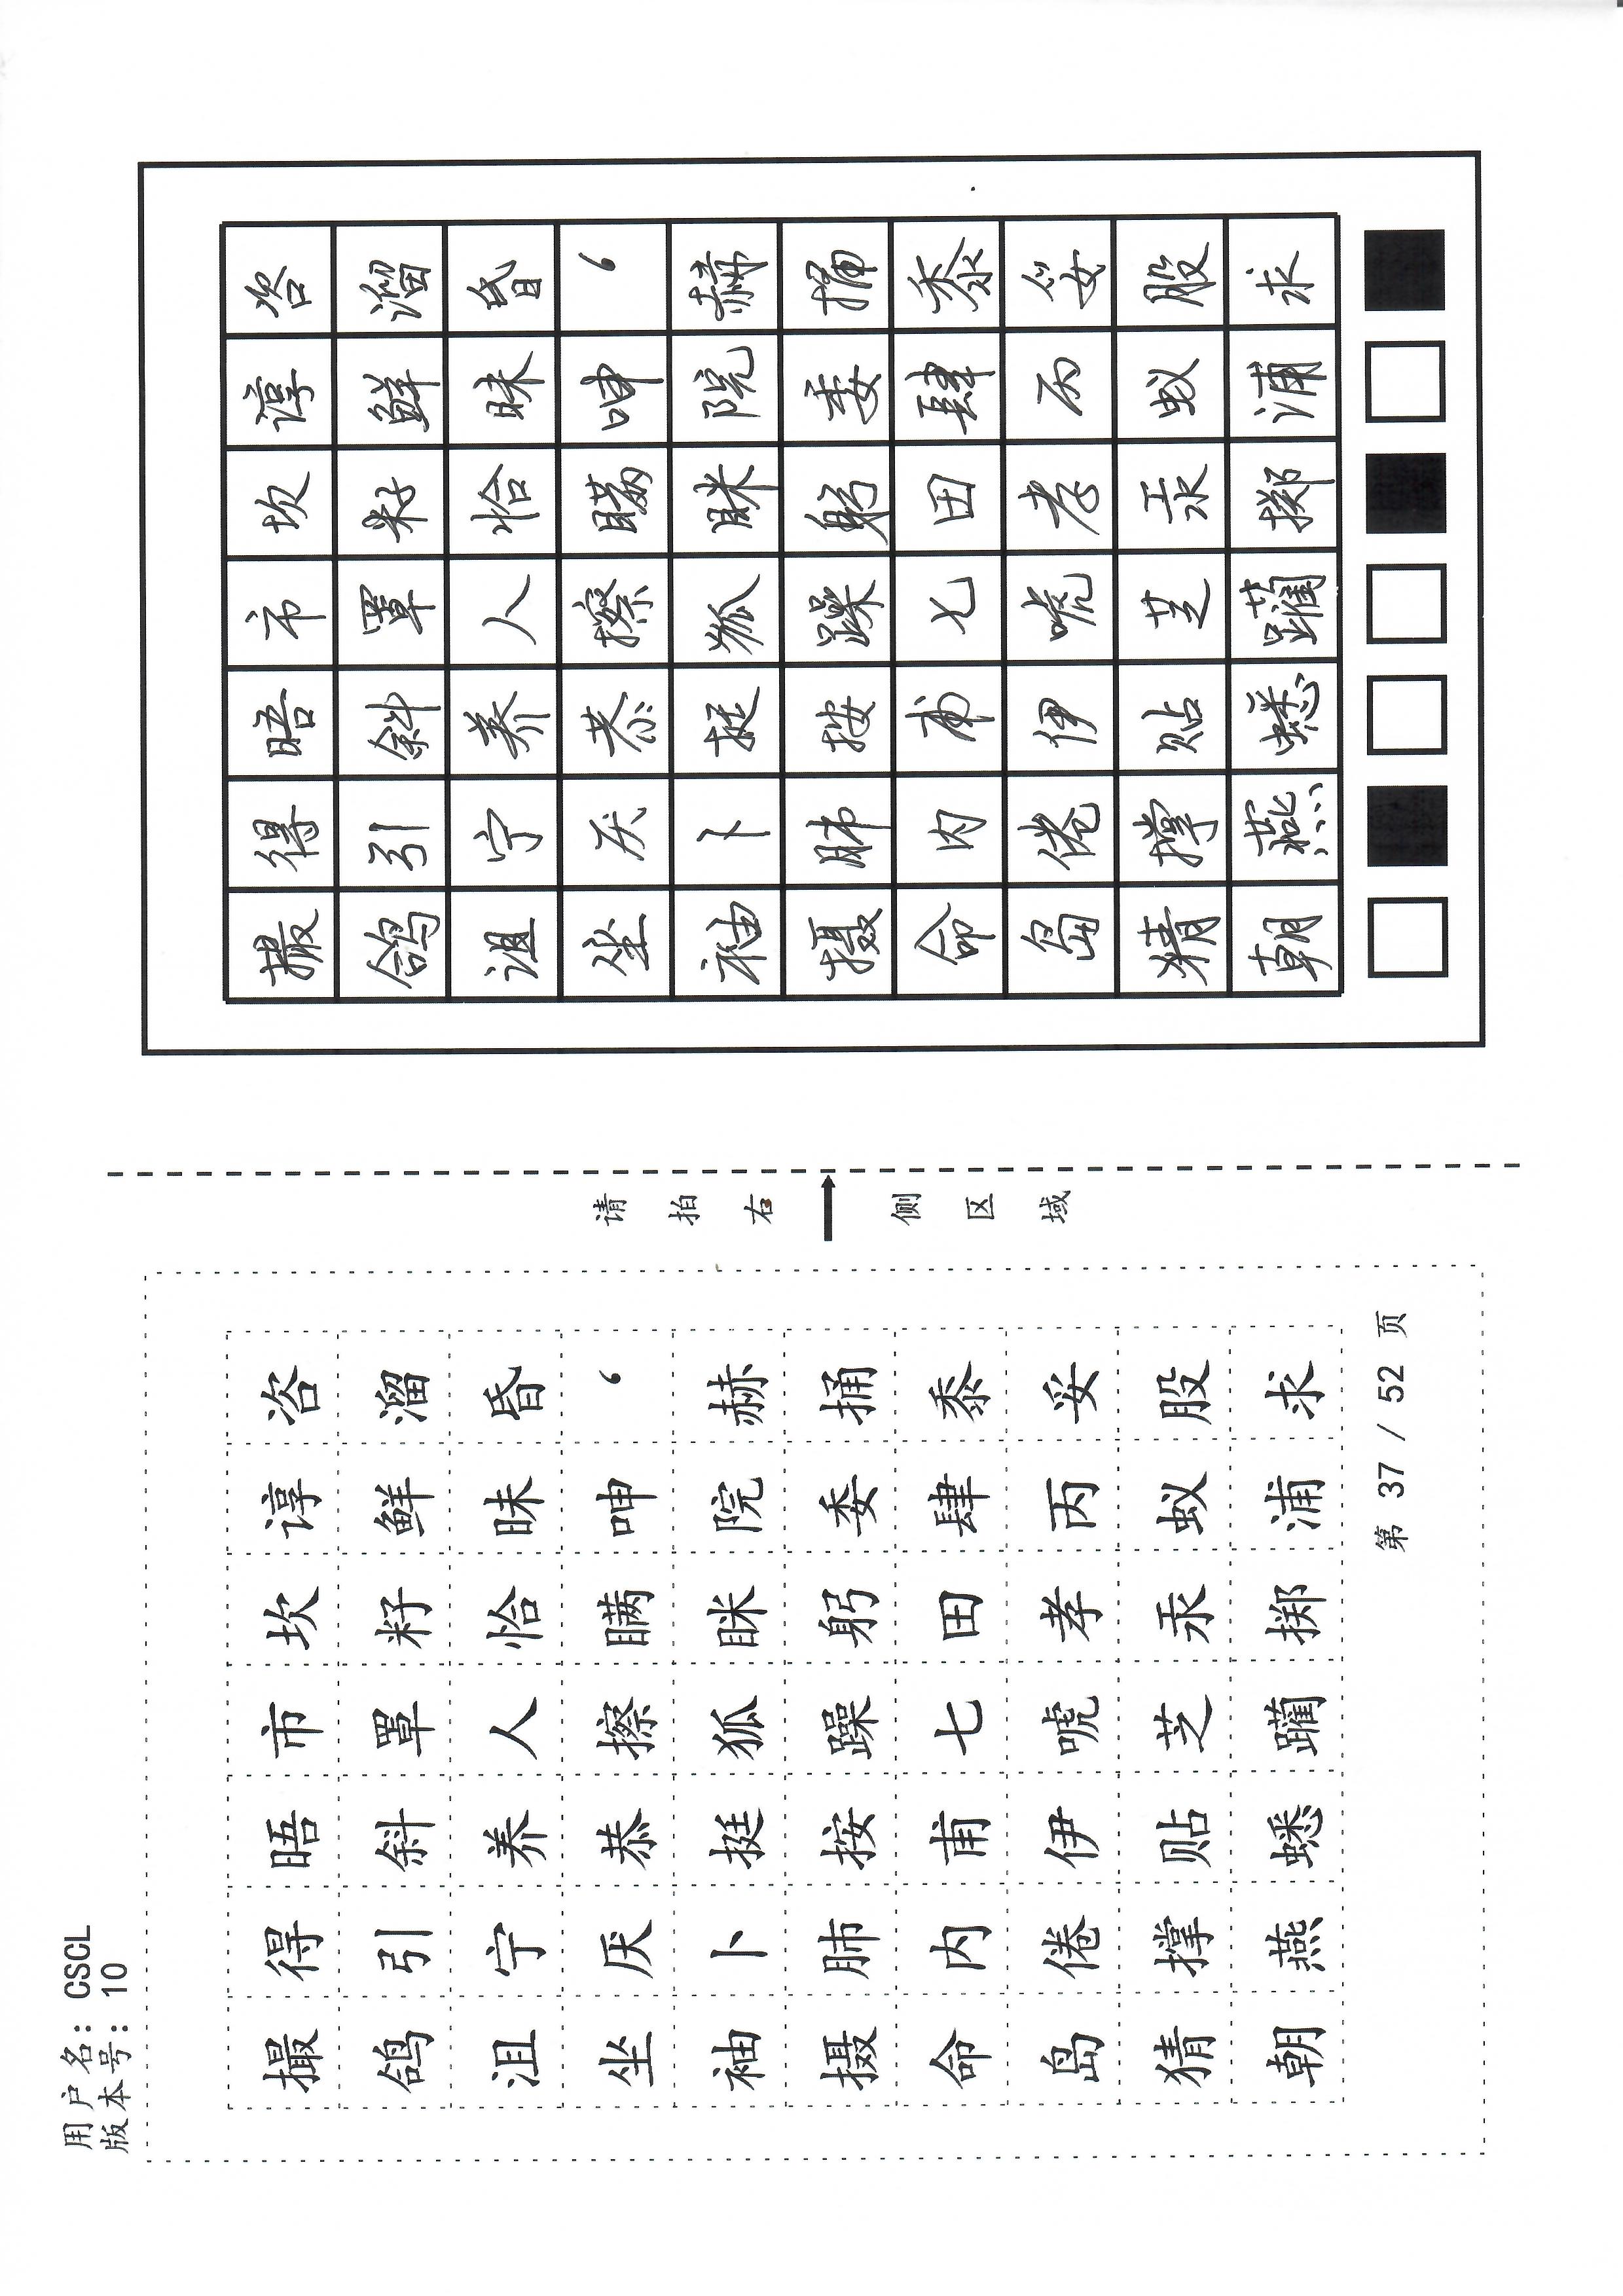 用户名：CSCL
版本号：10
撮得晤市坎谆咨
鸽引斜罩籽鲜溜
沮宁养人恰昧昏
坐厌恭擦瞒呻‘
袖卜挺狐眯院赫
摄肺按躁躬委捅
命内甫七田肆黍
岛倦伊唬孝丙妥
猜撑贴芝汞蚁股
朝燕蟋躏掷浦求
第 37 / 52 页
请拍右→侧区域
撮得晤市坎谆咨
鸽引斜罩籽鲜溜
沮宁养人恰昧昏
坐厌恭擦瞒呻‘
袖卜挺狐眯院赫
摄肺按躁躬委捅
命内甫七田肆黍
岛倦伊唬孝丙妥
猜撑贴芝汞蚁股
朝燕蟋躏掷浦求